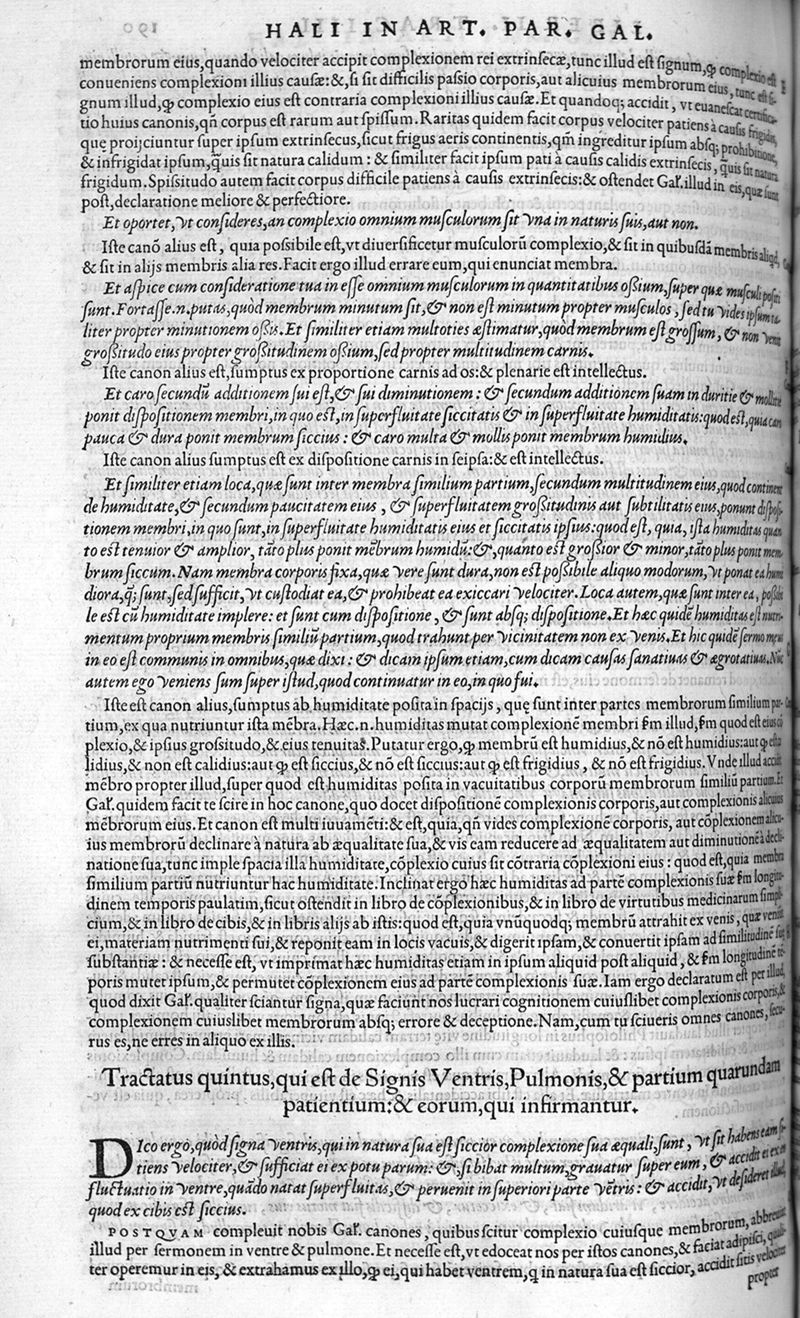 HALI IN ART. PAR. GAL.
membrorum eius, quando velociter accipit complexionem rei extrinſecæ, tunc illud eſt ſignum, ꝙ complexio eſt
conueniens complexioni illius cauſæ: &, ſi ſit difficilis paſsio corporis, aut alicuius membrorum eius, tunc eſt ſi-
gnum illud, ꝙ complexio eius eſt contraria complexioni illius cauſæ. Et quandoq; accidit, vt euaneſcat certifica-
tio huius canonis, qñ corpus eſt rarum aut ſpiſſum. Raritas quidem facit corpus velociter patiens à cauſis frigidis,
quę proijciuntur ſuper ipſum extrinſecus, ſicut frigus aeris continentis, qm̃ ingreditur ipſum abſq; prohibitione,
& infrigidat ipſum, q̃uis ſit natura calidum: & ſimiliter facit ipſum pati à cauſis calidis extrinſecis, q̃uis ſit natura
frigidum. Spiſsitudo autem facit corpus difficile patiens à cauſis extrinſecis: & oſtendet Gal̃. illud in eis, quæ ſunt
poſt, declaratione meliore & perfectiore.
Et oportet, vt conſideres, an complexio omnium muſculorum ſit vna in naturis ſuis, aut non.
Iſte canõ alius eſt, quia poſsibile eſt, vt diuerſificetur muſculorũ complexio, & ſit in quibuſdã membris aliqd,
& ſit in alijs membris alia res. Facit ergo illud errare eum, qui enunciat membra.
Et aſpice cum conſideratione tua in eſſe omnium muſculorum in quantitatibus oßium, ſuper quæ muſculi poſiti
ſunt. Fortaſſe.n. putas, quòd membrum minutum ſit, & non eſt minutum propter muſculos, ſed tu vides ipſum ta-
liter propter minutionem oßis. Et ſimiliter etiam multoties æſtimatur, quòd membrum eſt groſſum, & non venit
großitudo eius propter großitudinem oßium, ſed propter multitudinem carnis.
Iſte canon alius eſt, ſumptus ex proportione carnis ad os: & plenarie eſt intellectus.
Et caro ſecundũ additionem ſui eſt, & ſui diminutionem: & ſecundum additionem ſuam in duritie & mollitie
ponit diſpoſitionem membri, in quo eſt, in ſuperfluitate ſiccitatis & in ſuperfluitate humiditatis: quod eſt, quia caro
pauca & dura ponit membrum ſiccius: & caro multa & mollis ponit membrum humidius.
Iſte canon alius ſumptus eſt ex diſpoſitione carnis in ſeipſa: & eſt intellectus.
Et ſimiliter etiam loca, quæ ſunt inter membra ſimilium partium, ſecundum multitudinem eius, quod continent
de humiditate, & ſecundum paucitatem eius, & ſuperfluitatem großitudinis aut ſubtilitatis eius, ponunt diſpoſi-
tionem membri, in quo ſunt, in ſuperfluitate humiditatis eius et ſiccitatis ipſius: quod eſt, quia, iſta humiditas quan-
to eſt tenuior & amplior, tãto plus ponit mẽbrum humidũ: &, quanto eſt großior & minor, tãto plus ponit mem-
brum ſiccum. Nam membra corporis fixa, quæ vere ſunt dura, non eſt poßibile aliquo modorum, vt ponat ea humi
diora, q̃; ſunt, ſed ſufficit, vt cuſtodiat ea, & prohibeat ea exiccari velociter. Loca autem, quæ ſunt inter ea, poßibi
le eſt cũ humiditate implere: et ſunt cum diſpoſitione, & ſunt abſq; diſpoſitione. Et hæc quidẽ humiditas eſt nutri-
mentum proprium membris ſimiliũ partium, quod trahunt per vicinitatem non ex venis. Et hic quidẽ ſermo meus
in eo eſt communis in omnibus, quæ dixi: & dicam ipſum etiam, cum dicam cauſas ſanatiuas & ægrotatiuas. Nũc
autem ego veniens ſum ſuper iſtud, quod continuatur in eo, in quo fui.
Iſte eſt canon alius, ſumptus ab humiditate poſita in ſpacijs, quę ſunt inter partes membrorum ſimilium par-
tium, ex qua nutriuntur iſta mẽbra. Hæc.n. humiditas mutat complexionẽ membri ſm illud, ſm quod eſt eius cõ
plexio, & ipſius groſsitudo, & eius tenuitas. Putatur ergo, ꝙ membrũ eſt humidius, & nõ eſt humidius: aut ꝙ eſt ca
lidius, & non eſt calidius: aut ꝙ eſt ſiccius, & nõ eſt ſiccius: aut ꝙ eſt frigidius, & nõ eſt frigidius. Vnde illud accidit
mẽbro propter illud, ſuper quod eſt humiditas poſita in vacuitatibus corporũ membrorum ſimiliũ partium. Et
Gal̃. quidem facit te ſcire in hoc canone, quo docet diſpoſitionẽ complexionis corporis, aut complexionis alicuius
mẽbrorum eius. Et canon eſt multi iuuamẽti: & eſt, quia, qñ vides complexionẽ corporis, aut cõplexionem alicu-
ius membrorũ declinare à natura ab æqualitate ſua, & vis eam reducere ad æqualitatem aut diminutionẽ à decli-
natione ſua, tunc imple ſpacia illa humiditate, cõplexio cuius ſit cõtraria cõplexioni eius: quod eſt, quia membra
ſimilium partiũ nutriuntur hac humiditate. Inclinat ergo hæc humiditas ad partẽ complexionis ſuæ ſm longitu-
dinem temporis paulatim, ſicut oſtendit in libro de cõplexionibus, & in libro de virtutibus medicinarum ſimpli-
cium, & in libro de cibis, & in libris alijs ab iſtis: quod eſt, quia vnũquodq; membrũ attrahit ex venis, quæ veniũt
ei, materiam nutrimenti ſui, & reponit eam in locis vacuis, & digerit ipſam, & conuertit ipſam ad ſimilitudinẽ ſuę
ſubſtantiæ: & neceſſe eſt, vt imprimat hæc humiditas etiam in ipſum aliquid poſt aliquid, & ſm longitudinẽ tẽ-
poris mutet ipſum, & permutet cõplexionem eius ad partẽ complexionis ſuæ. Iam ergo declaratum eſt per illud,
quod dixit Gal̃. qualiter ſciantur ſigna, quæ faciunt nos lucrari cognitionem cuiuſlibet complexionis corporis, &
complexionem cuiuſlibet membrorum abſq; errore & deceptione. Nam, cum tu ſciueris omnes canones, ſecu-
rus es, ne erres in aliquo ex illis.
Tractatus quintus, qui eſt de Signis Ventris, Pulmonis, & partium quarundam
patientium: & eorum, qui infirmantur.
DIco ergo, quòd ſigna ventris, qui in natura ſua eſt ſiccior complexione ſua æquali, ſunt, vt ſit habens eam ſi-
tiens velociter, & ſufficiat ei ex potu parum: &, ſi bibat multum, grauatur ſuper eum, & accidit ei ex eo
fluctuatio in ventre, quãdo natat ſuperfluitas, & peruenit in ſuperiori parte vẽtris: & accidit, vt deſideret illud,
quod ex cibis eſt ſiccius.
POSTQVAM compleuit nobis Gal̃. canones, quibus ſcitur complexio cuiuſque membrorum, abbreuiat
illud per ſermonem in ventre & pulmone. Et neceſſe eſt, vt edoceat nos per iſtos canones, & faciat adipiſci, quali
ter operemur in eis, & extrahamus ex illo, ꝙ ei, qui habet ventrem, q in natura ſua eſt ſiccior, accidit ſitis velociter
propter